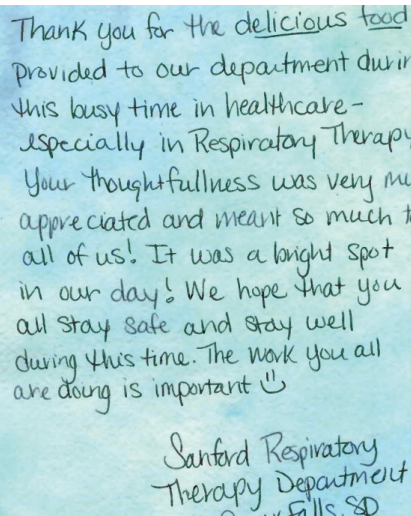 Thank you for the delicious food
provided to our department durin
this busy time in healthcare-
especially in Respiratory Therapy
Your thoughtfullness was very mu
appreciated and meant so much t
all of us! It was a bright spot
in our day! We hope that you
all stay safe and stay well
during this time. The work you all
are doing is important
Sanford Respiratory
Therapy Department
Falls, SD